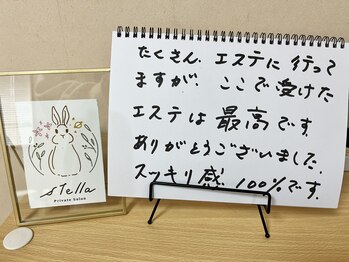 たくさん、エステに行って
ますが、ここで受けた
エステは最高です。
ありがとうございました。
スッキリ感100%です。
sTella
Private Salon